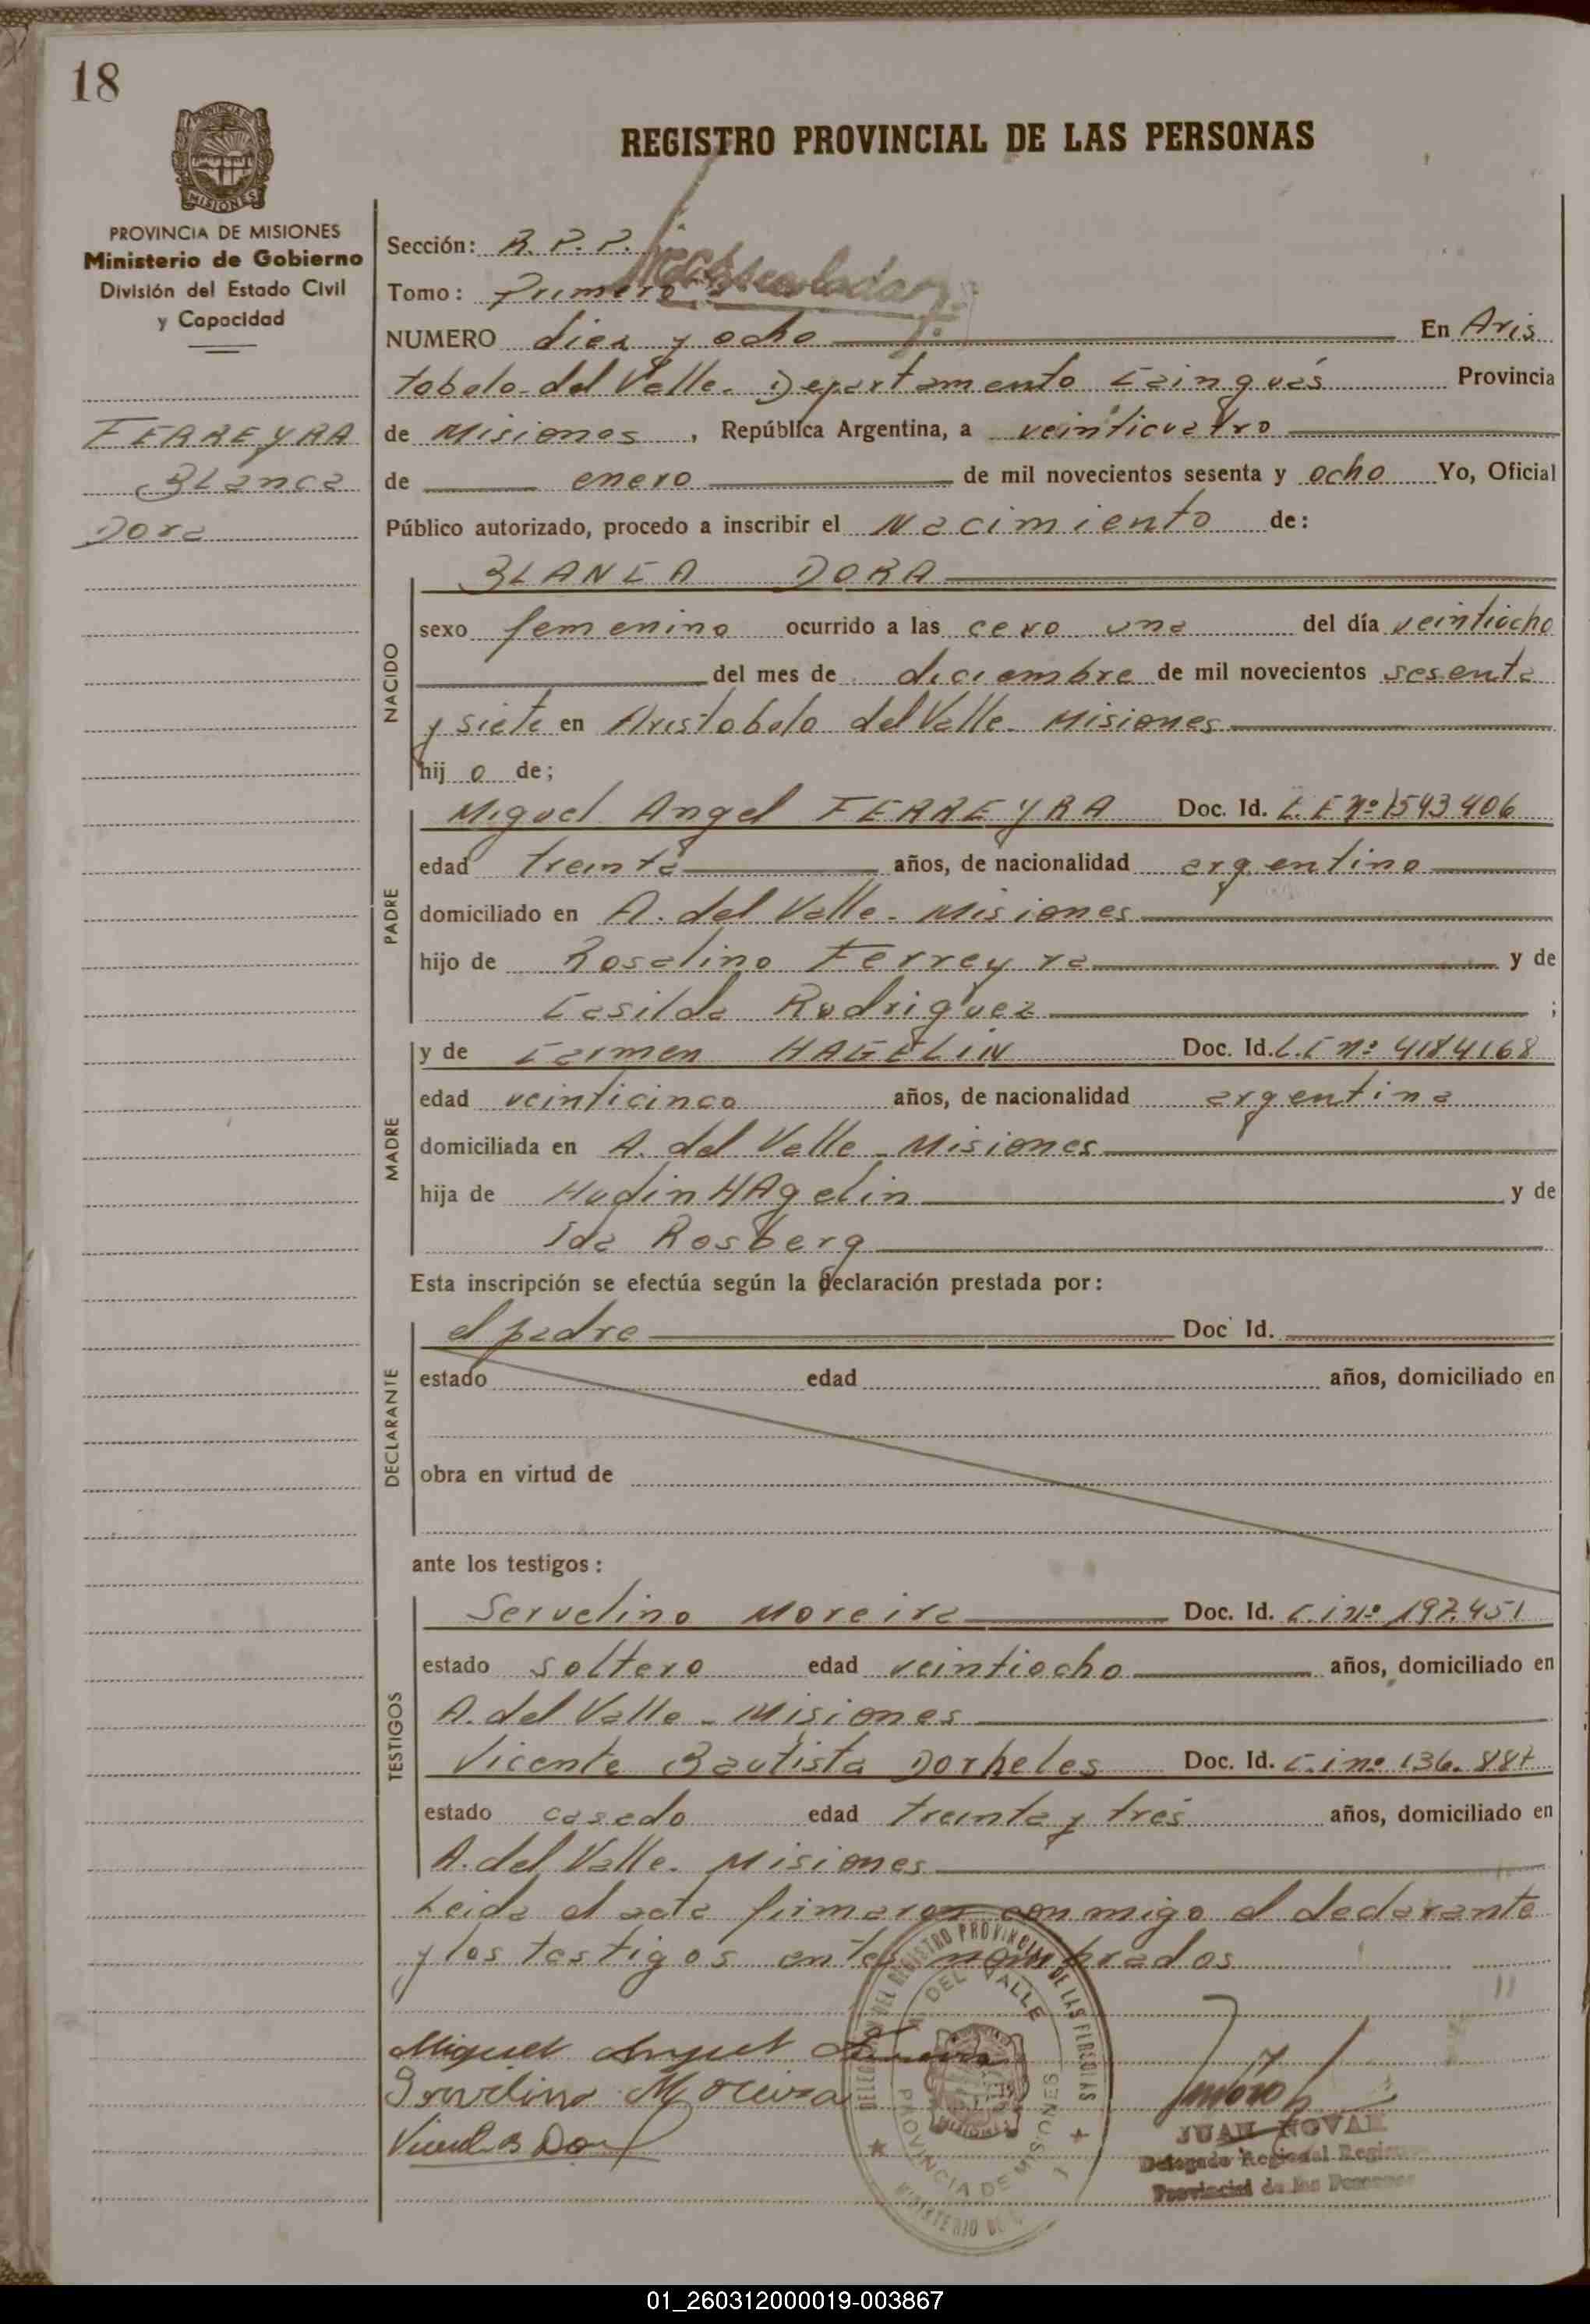 18
REGISTRO PROVINCIAL DE LAS PERSONAS
PROVINCIA DE MISIONES
Ministerio de Gobierno
División del Estado Civil
y Capacidad
FERREYRA
Blanca
Dora
Sección: R. P. P.
Tomo: Primero
NUMERO diez y ocho En Aris
tobolo del Valle. Departamento Cainguás Provincia
de Misiones, República Argentina, a veinticuatro
de enero de mil novecientos sesenta y ocho Yo, Oficial
Público autorizado, procedo a inscribir el Nacimiento de:
NACIDO
BLANCA DORA
sexo femenino ocurrido a las cero una del día veintiocho
del mes de diciembre de mil novecientos sesenta
y siete en Aristobolo del Valle. Misiones
hij o de;
PADRE
Miguel Angel FERREYRA Doc. Id. L. E Nº 1543406
edad treinta años, de nacionalidad argentino
domiciliado en A. del Valle - Misiones
hijo de Rosalino Ferreyra y de
Casilda Rodriguez ;
MADRE
y de Carmen HAGELIN Doc. Id. L.C nº 4184168
edad veinticinco años, de nacionalidad argentina
domiciliada en A. del Valle - Misiones
hija de HAgelin y de
Ida Rosberg
Esta inscripción se efectúa según la declaración prestada por:
DECLARANTE
el padre Doc Id.
estado edad años, domiciliado en
obra en virtud de
ante los testigos:
TESTIGOS
Servelino Moreira Doc. Id. C.i nº 197.451
estado soltero edad veintiocho años, domiciliado en
A. del Valle - Misiones
Vicente Bautista Dorneles Doc. Id. C.i nº 136.887
estado casado edad treinta y tres años, domiciliado en
A. del Valle. Misiones
Leida el acta firmaron conmigo el declarante
y los testigos antes nombrados
Miguel Angel Ferreira
Servelino Moreira
DELEGACION DEL REGISTRO PROVINCIAL DE LAS PERSONAS
A. DEL VALLE
PROVINCIA DE MISIONES
MINISTERIO DE
JUAN NOVAK
Delegado Regional Registro
Provincial de las Personas
01_260312000019-003867